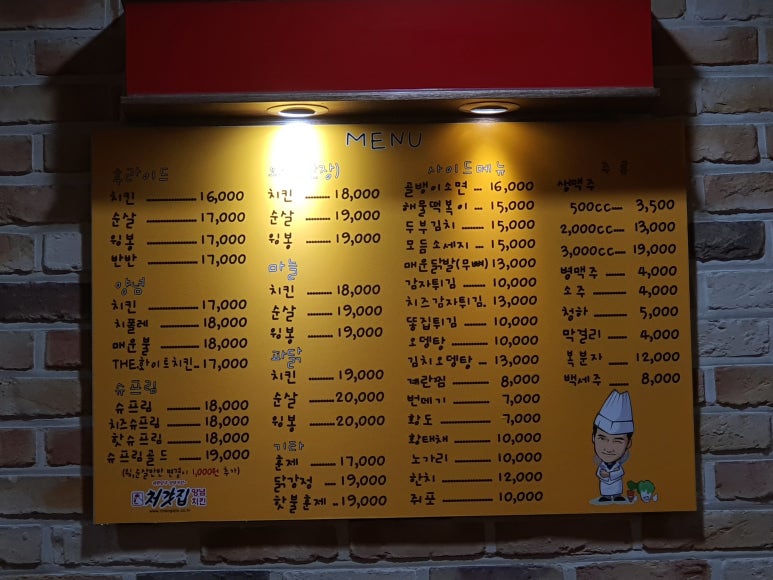 MENU
후라이드
치킨 16,000
순살 17,000
윙봉 17,000
반반 17,000
양념
치킨 17,000
치폴레 18,000
매운불 18,000
THE화이트치킨 17,000
슈프림
슈프림 18,000
치즈슈프림 18,000
핫슈프림 18,000
슈프림골드 19,000
1,000원 추가)
처갓집 양념치킨
장)
치킨 18,000
순살 19,000
윙봉 19,000
마늘
치킨 18,000
순살 19,000
윙봉 19,000
파닭
치킨 19,000
순살 20,000
윙봉 20,000
기타
훈제 17,000
닭강정 19,000
핫불훈제 19,000
사이드메뉴
골뱅이소면 16,000
해물떡볶이 15,000
두부김치 15,000
모듬소세지 15,000
매운닭발(무뼈) 13,000
감자튀김 10,000
치즈감자튀김 13,000
똥집튀김 10,000
오뎅탕 10,000
김치오뎅탕 13,000
계란찜 8,000
번데기 7,000
황도 7,000
황태채 10,000
노가리 10,000
한치 12,000
쥐포 10,000
주류
생맥주
500cc 3,500
2,000cc 13,000
3,000cc 19,000
병맥주 4,000
소주 4,000
청하 5,000
막걸리 4,000
복분자 12,000
백세주 8,000